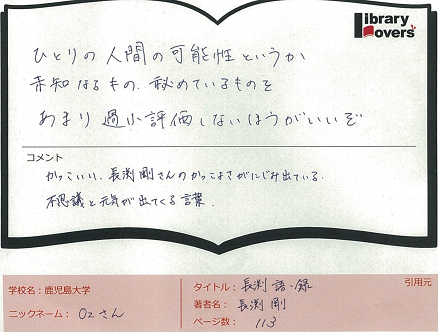 Library Lovers
ひとりの人間の可能性というか
未知なるもの、秘めているものを
あまり過小評価しないほうがいいぞ
コメント
かっこいい、長渕剛さんのかっこよさがにじみ出ている。
不思議と元気が出てくる言葉。
学校名：鹿児島大学
ニックネーム：Ozさん
引用元
タイトル：長渕語・録
著者名：長渕 剛
ページ数：113